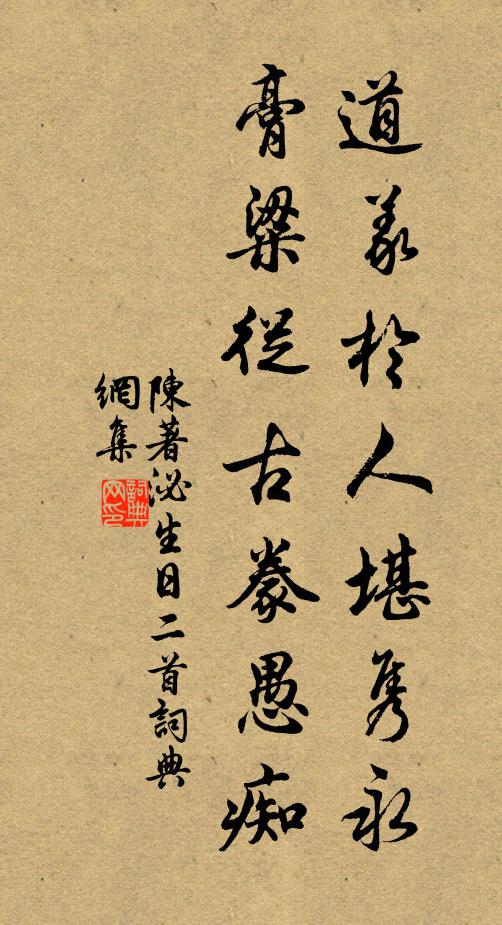 道义於人堪隽永
膏粱從古豢愚痴
陳著泌生日二首詞典
網集
詞典
网印